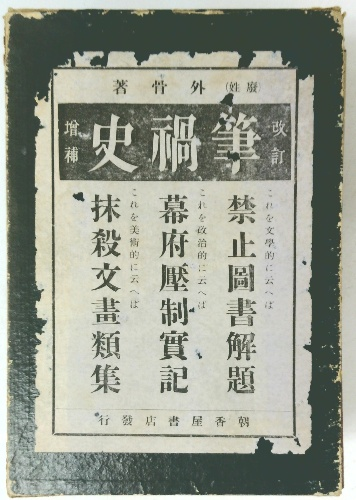 (廢姓)外骨著
改訂
筆禍史
增補
これを文學的に云へば
禁止圖書解題
これを政治的に云へば
幕府壓制實記
これを美術的に云へば
抹殺文畫類集
朝香屋書店發行